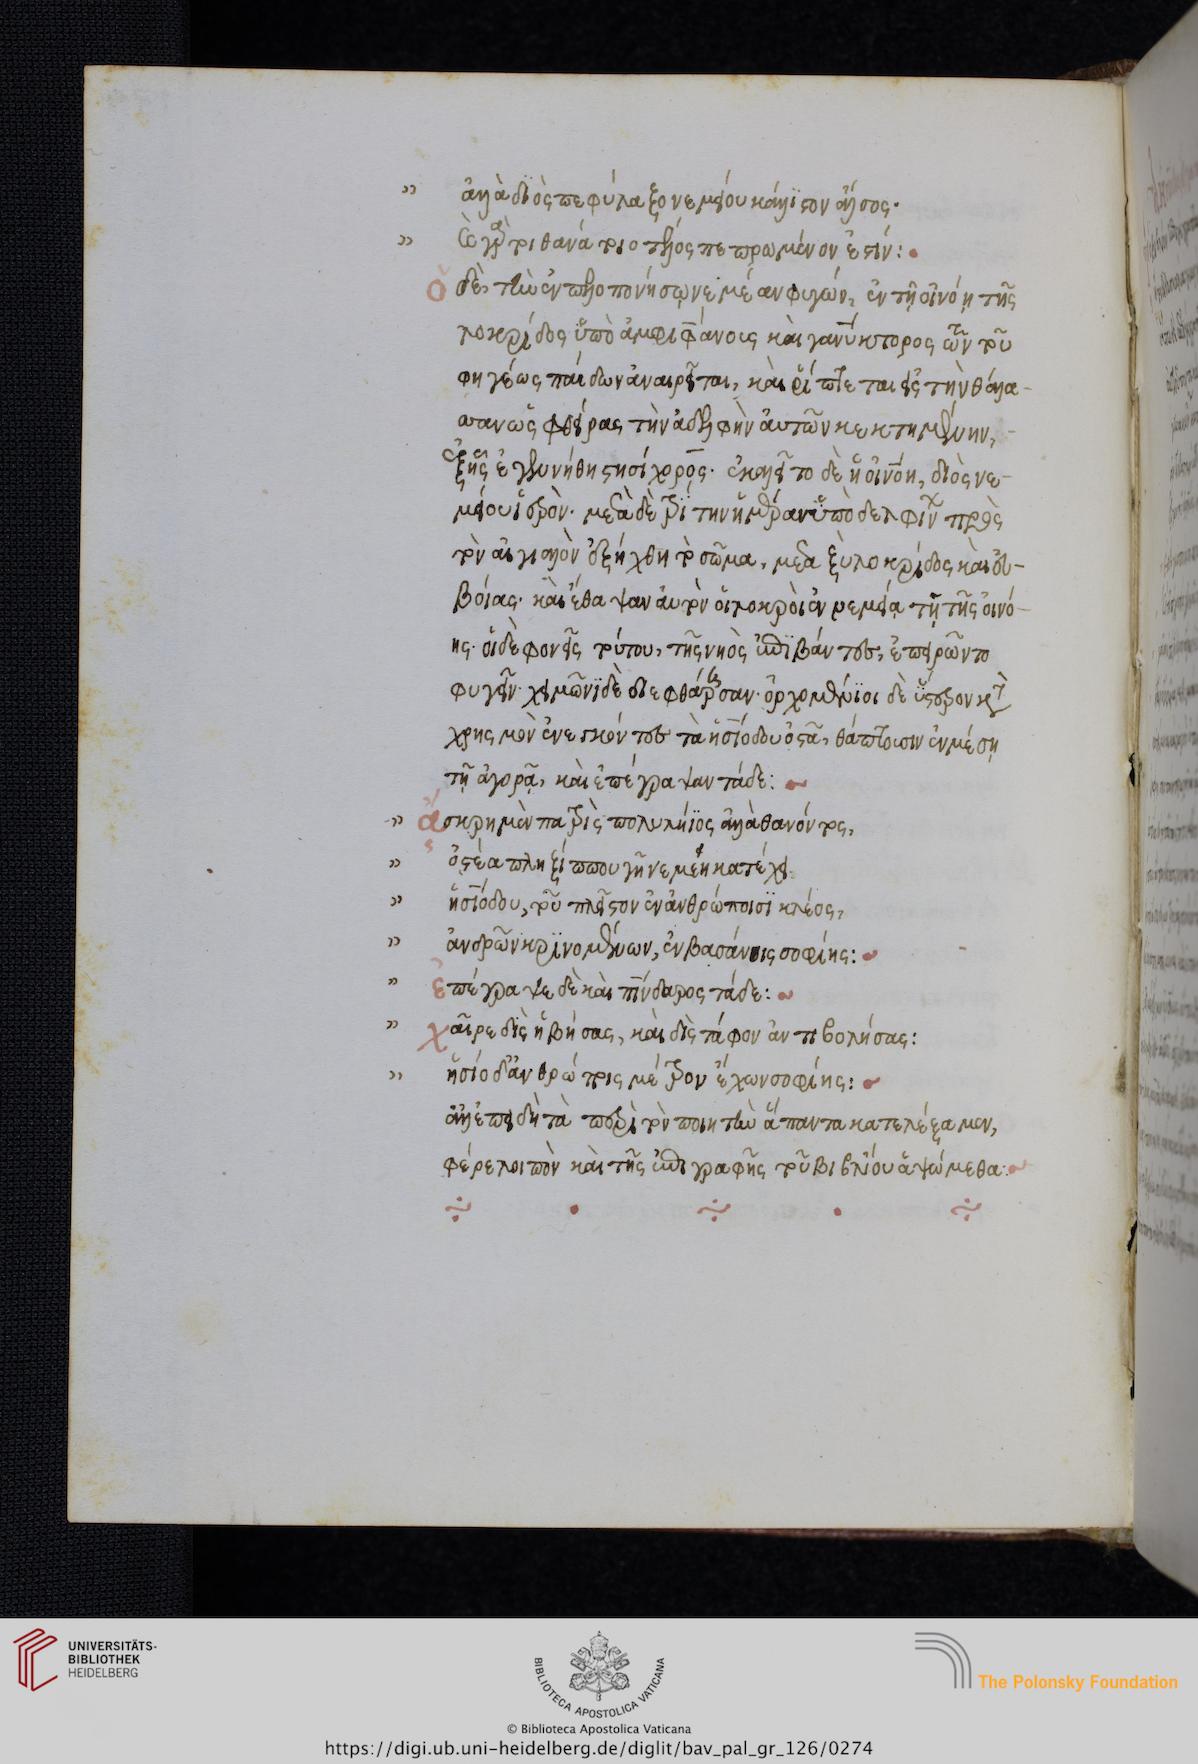 ἀλλὰ διὸς πεφύλαξο νεμείου κάλλιστον ἄλσος·
ὧ γάρ τοι θανάτοιο τέλος πεπρωμένον ἐστίν:
ὁ δὲ, τὴν ἐν πελοποννήσῳ νεμέαν φυγὼν, ἐν τῇ οἰνόῃ τῆς
λοκρίδος ὑπὸ ἀμφιφάνους καὶ γανύκτορος τῶν τοῦ
φηγέως παίδων ἀναιρεῖται, καὶ ῥίπτεται εἰς τὴν θάλα-
σαν ὡς φθείρας τὴν ἀδελφὴν αὐτῶν κτημένην,
ἐξ ἧς ἐγεννήθη στησίχορος· ἐκαλεῖτο δὲ ἡ οἰνόη, διὸς νε-
μείου ἱερὸν· μετὰ δὲ τρίτην ἡμέραν ὑπὸ δελφίνων πρὸς
τὸν αἰγιαλὸν ἐξήχθη τὸ σῶμα, μεταξὺ λοκρίδος καὶ εὐ-
βοίας· καὶ ἔθαψαν αὐτὸν οἱ λοκροὶ ἐν νεμέᾳ τῇ τῆς οἰνό-
ης· οἱ δὲ φονεῖς τούτου, τῆς νηὸς ἐπιβάντες, ἐπειρῶντο
φυγεῖν· χειμῶνι δὲ διεφθάρησαν· ὀρχομένιοι δὲ ὕστερον κατὰ
χρησμὸν ἐνεγκόντες τὰ ἡσιόδου ὀστᾶ, θάπτουσιν ἐν μέσῃ
τῇ ἀγορᾷ, καὶ ἐπέγραψαν τάδε:
ἄσκρη μὲν πατρὶς πολυλήϊος ἀλλὰ θανόντος,
ὀστέα πληξίππου γῆ νεμέη κατέχει
ἡσιόδου, τοῦ πλεῖστον ἐν ἀνθρώποισι κλέος,
ἀνδρῶν κρινομένων, ἐν βασάνοις σοφίης:
ἐπέγραψε δὲ καὶ πίνδαρος τάδε:
χαῖρε δὶς ἡβήσας, καὶ δὶς τάφον ἀντιβολήσας:
ἡσίοδ' ἀνθρώποις μέτρον ἔχων σοφίης:
ἀλλ' ἐπειδὴ τὰ περὶ τὸν ποιητὴν ἅπαντα κατελέξαμεν,
φέρε λοιπὸν καὶ τῆς ἐπιγραφῆς τοῦ βιβλίου ἁψώμεθα:
UNIVERSITÄTS-
BIBLIOTHEK
HEIDELBERG
BIBLIOTECA APOSTOLICA VATICANA
The Polonsky Foundation
© Biblioteca Apostolica Vaticana
https://digi.ub.uni-heidelberg.de/diglit/bav_pal_gr_126/0274